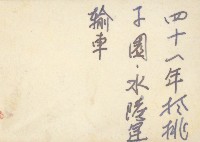 四十八年於桃
子園·水陸運
輸車